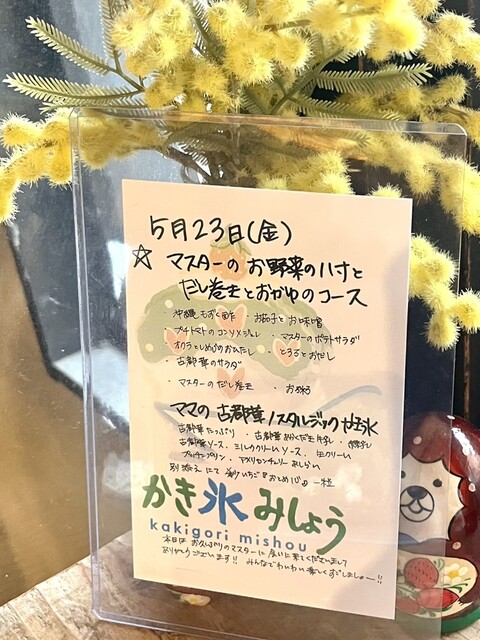 5月23日(金)
☆ マスターの お野菜の八寸と
だし巻玉とおがゆのコース
・沖縄もずく酢 ・お茄子とお味噌
・プチトマトのコンソメジュレ ・マスターのポテトサラダ
・オクラとしめじのおひたし ・とろろとおだし
・古都華のサラダ
・マスターのだし巻玉 ・お粥
ママの 古都華ノスタルジックな氷
古都華たっぷり ・古都華
古都華ソース、ミルククリームソース、生クリーム
プッチンプリン・アメリカンチェリー あしらい
別添えにて いちご"おとめ心" 一粒
かき氷 みしょう
kakigori mishou
本日は お久しぶりのマスターに会いに来てくださいまして
ありがとうございます!! みんなでわいわい楽しくすごしましょー!!